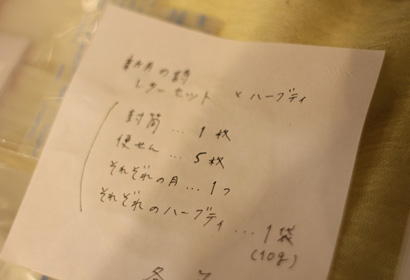 月の詩
レターセット × ハーブティ
封筒…1枚
便せん…5枚
それぞれの月…1つ
それぞれのハーブティ…1袋
(10g)